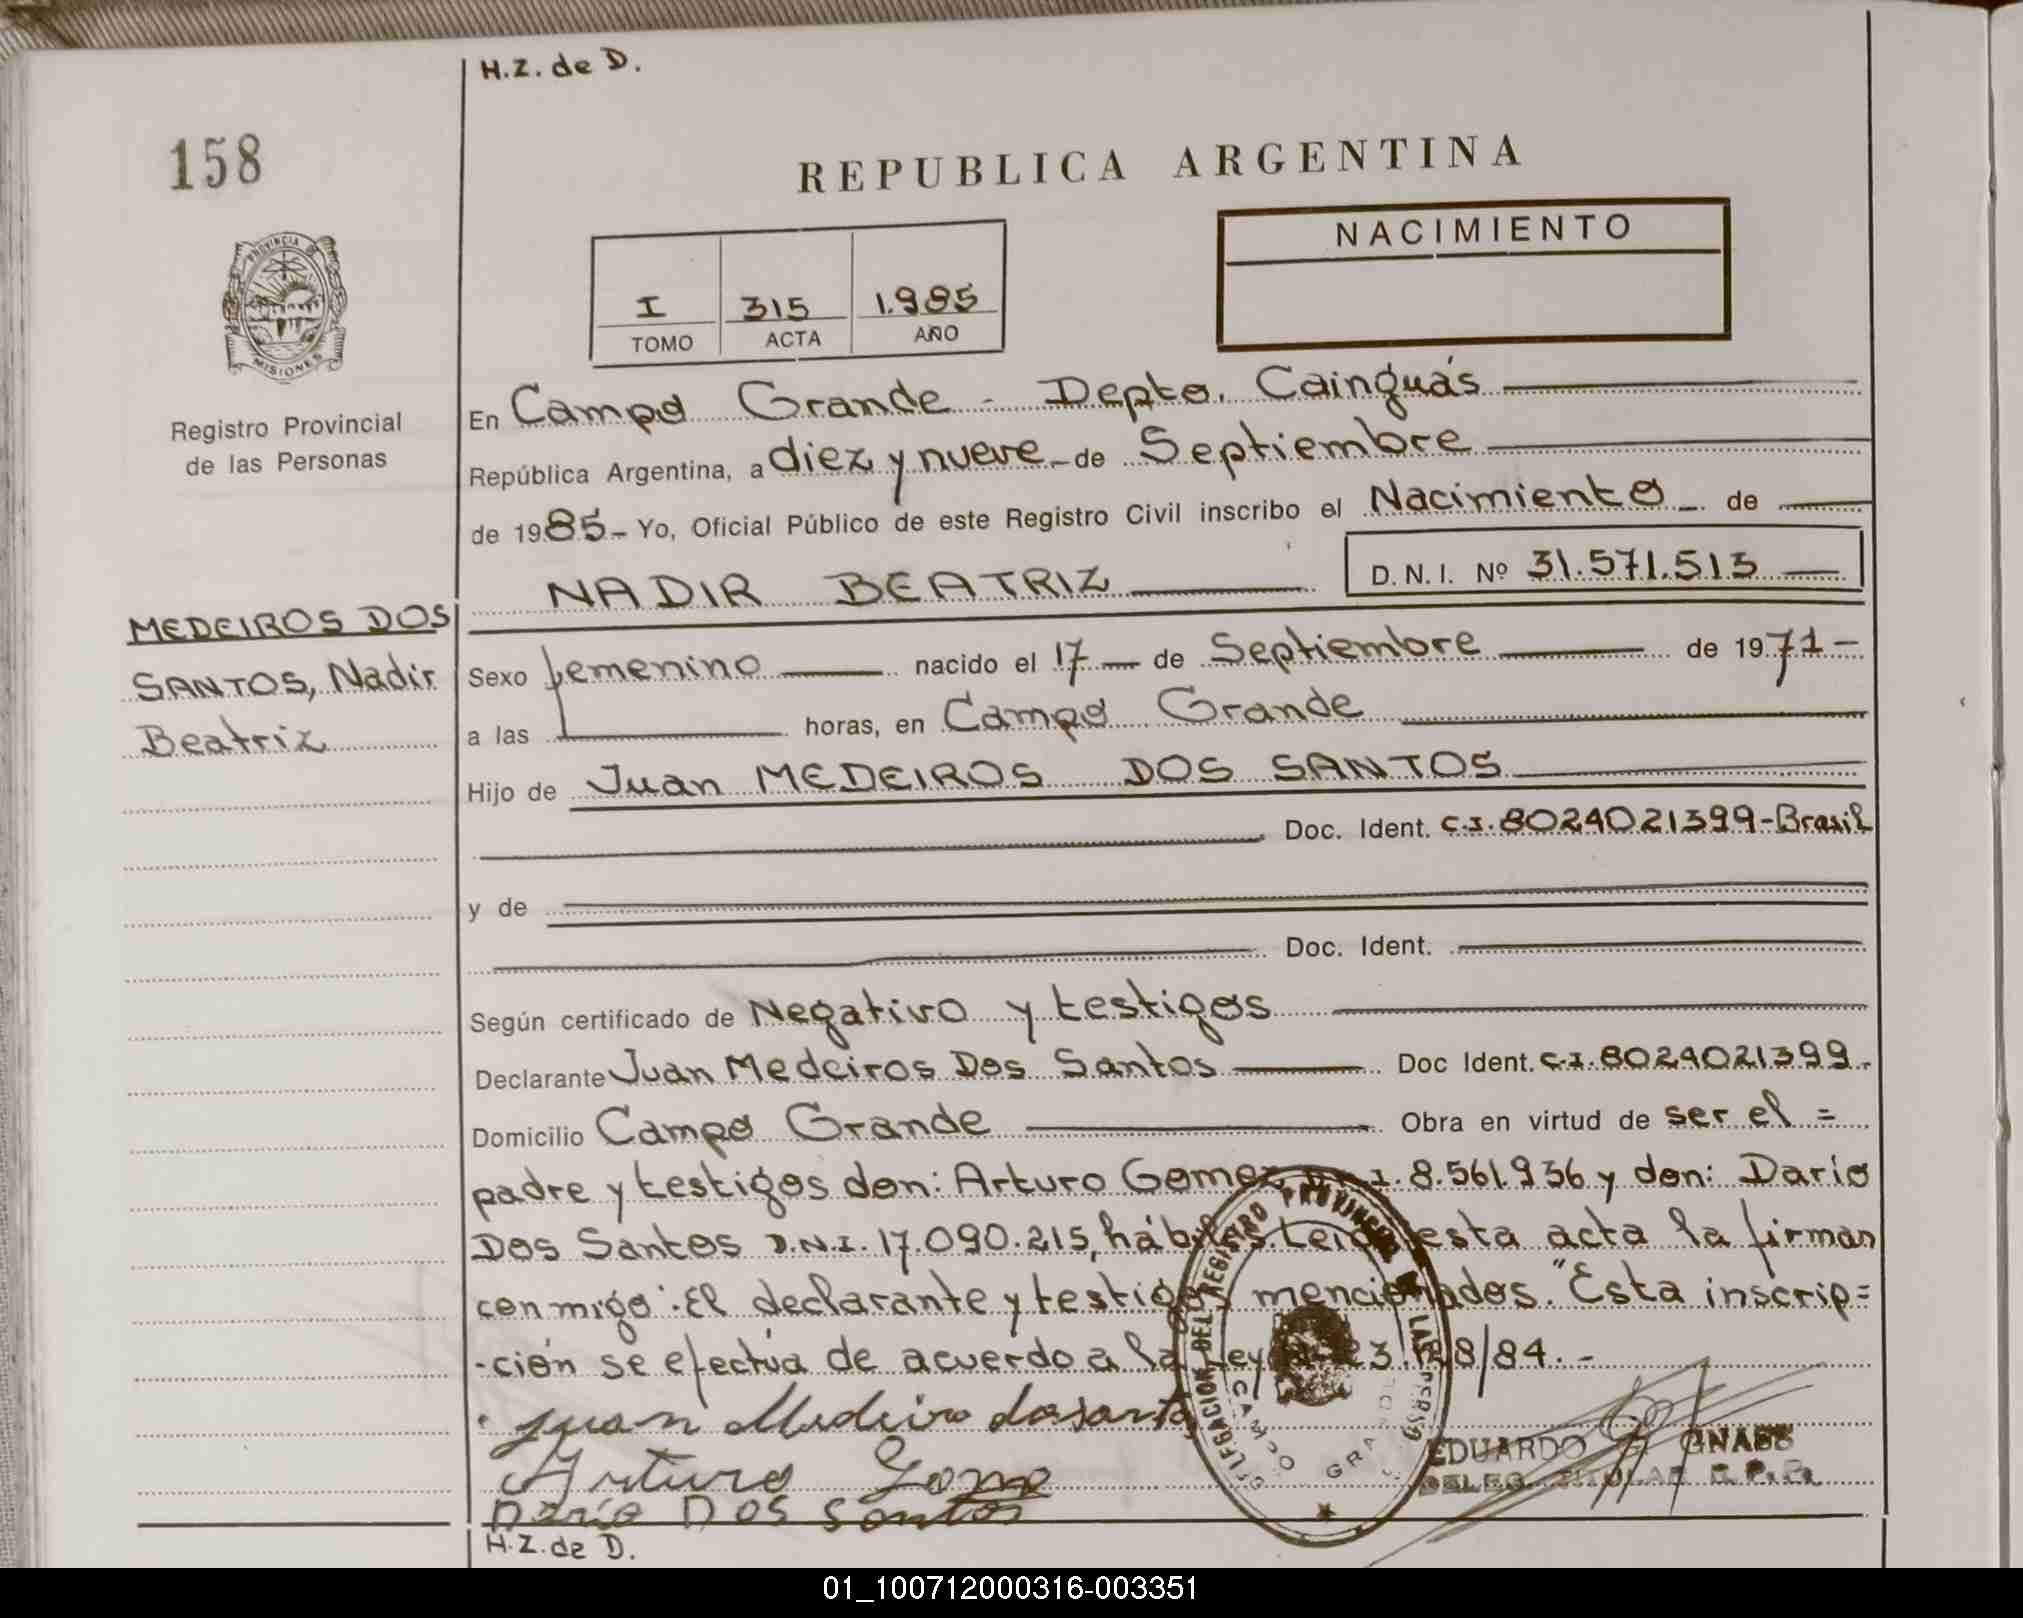 H.Z. de D.
158
REPUBLICA ARGENTINA
NACIMIENTO
I 315 1.985
TOMO ACTA AÑO
PROVINCIA DE
MISIONES
Registro Provincial
de las Personas
MEDEIROS DOS
SANTOS, Nadir
Beatriz
En Campo Grande - Depto. Cainguás
República Argentina, a diez y nueve - de Septiembre
de 1985 - Yo, Oficial Público de este Registro Civil inscribo el Nacimiento - de
NADIR BEATRIZ D.N.I. Nº 31.571.513
Sexo femenino nacido el 17 de Septiembre de 1971 -
a las horas, en Campo Grande
Hijo de Juan MEDEIROS DOS SANTOS
Doc. Ident. C.I. 8024021399-Brasil
y de
Doc. Ident.
Según certificado de Negativo y testigos
Declarante Juan Medeiros Dos Santos Doc Ident. C.I. 8024021399.
Domicilio Campo Grande Obra en virtud de ser el =
padre y testigos don: Arturo Gomez 8.561.936 y don: Darío
Dos Santos D.N.I. 17.090.215, hábiles. Leida esta acta la firman
conmigo: El declarante y testigos mencionados. "Esta inscrip=
-ción se efectúa de acuerdo a la Ley 8/84. -
Juan Medeiro dosanto
Arturo Gome
Darío Dos Santos
DELEGACION DEL REGISTRO PROVINCIAL DE LAS PERSONAS
CAMPO GRANDE
EDUARDO GNASS
DELEG. TITULAR R.P.P.
H.Z. de D.
01_100712000316-003351